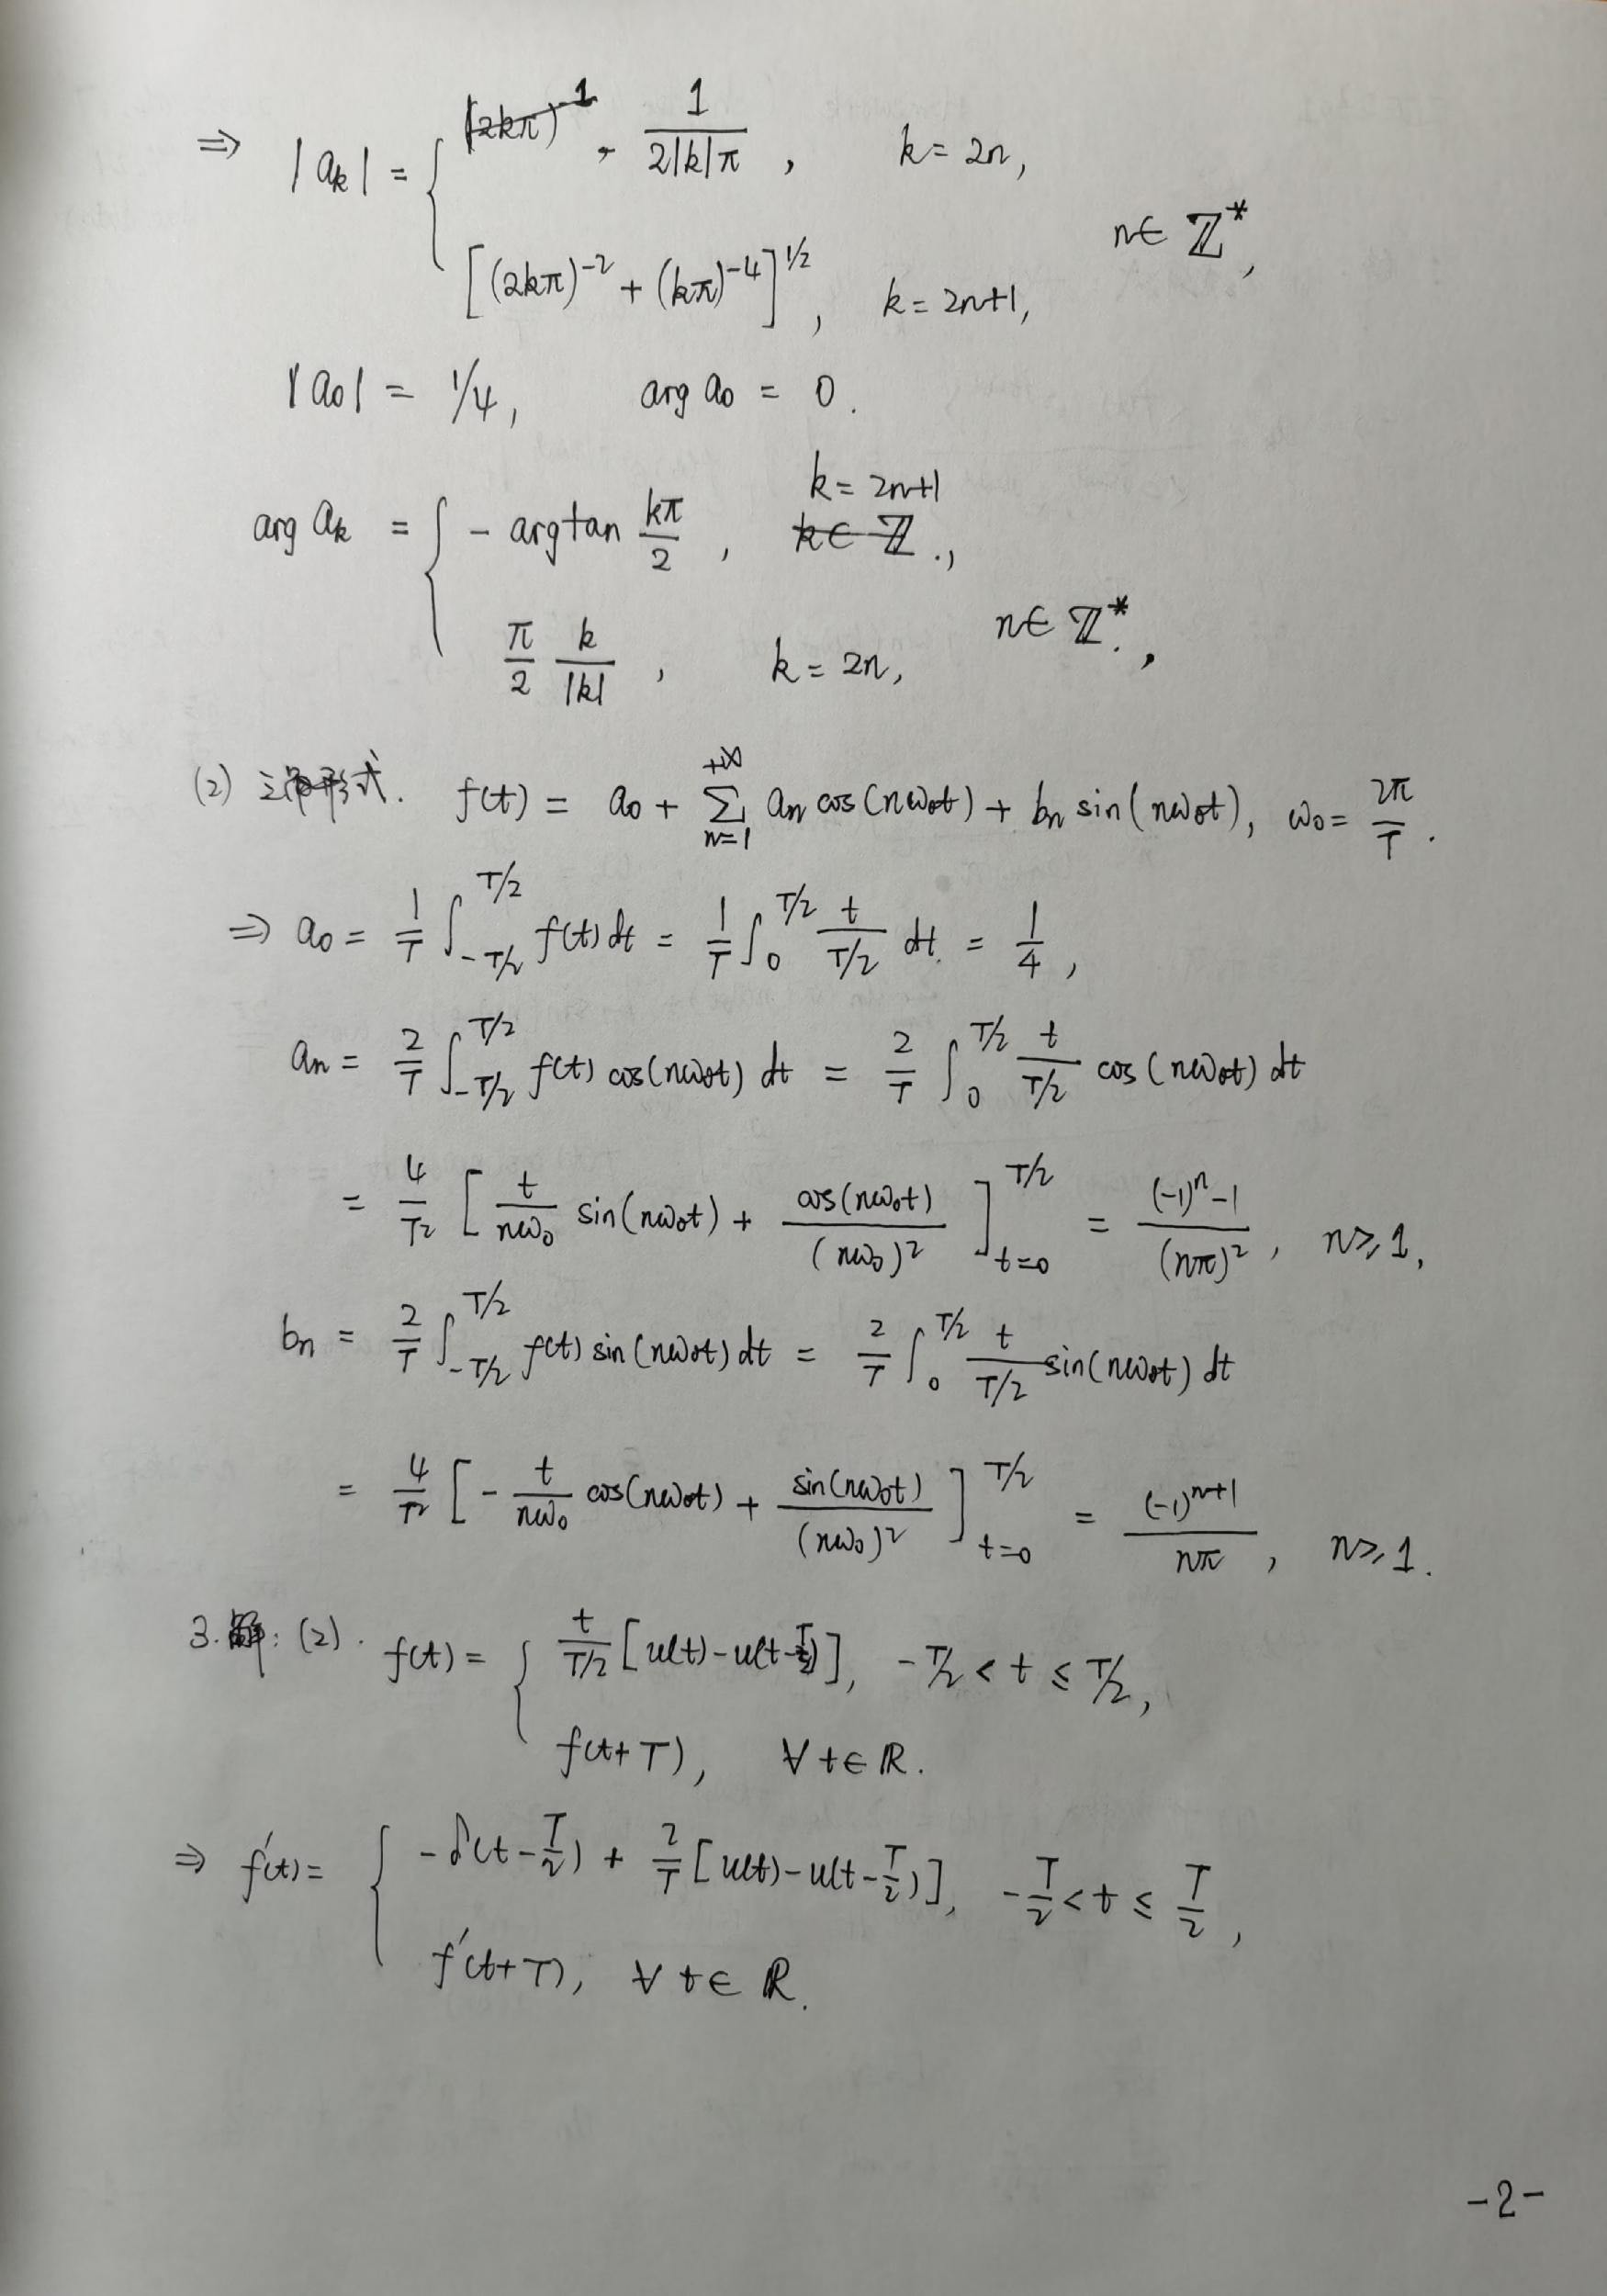 ⇒ |a_k| = { 1/(2|k|π), k=2n,
[(2kπ)^{-2} + (kπ)^{-4}]^{1/2}, k=2n+1, n∈ℤ*,
|a_0| = 1/4, arg a_0 = 0.
arg a_k = { - argtan kπ/2, k=2n+1,
π/2 k/|k|, k=2n, n∈ℤ*.,
(2) 三角形式. f(t) = a_0 + ∑_{n=1}^{+∞} a_n cos(nω_0t) + b_n sin(nω_0t), ω_0 = 2π/T.
⇒ a_0 = 1/T ∫_{-T/2}^{T/2} f(t) dt = 1/T ∫_0^{T/2} t/(T/2) dt = 1/4,
a_n = 2/T ∫_{-T/2}^{T/2} f(t) cos(nω_0t) dt = 2/T ∫_0^{T/2} t/(T/2) cos(nω_0t) dt
= 4/T² [ t/(nω_0) sin(nω_0t) + cos(nω_0t)/(nω_0)² ]_{t=0}^{T/2} = ((-1)^n - 1)/(nπ)², n≥1,
b_n = 2/T ∫_{-T/2}^{T/2} f(t) sin(nω_0t) dt = 2/T ∫_0^{T/2} t/(T/2) sin(nω_0t) dt
= 4/T² [ - t/(nω_0) cos(nω_0t) + sin(nω_0t)/(nω_0)² ]_{t=0}^{T/2} = (-1)^{n+1}/(nπ), n≥1.
3. 解: (2). f(t) = { t/(T/2) [u(t) - u(t-T/2)], -T/2 < t ≤ T/2,
f(t+T), ∀t∈ℝ.
⇒ f'(t) = { -δ(t-T/2) + 2/T [u(t) - u(t-T/2)], -T/2 < t ≤ T/2,
f'(t+T), ∀t∈ℝ.
-2-